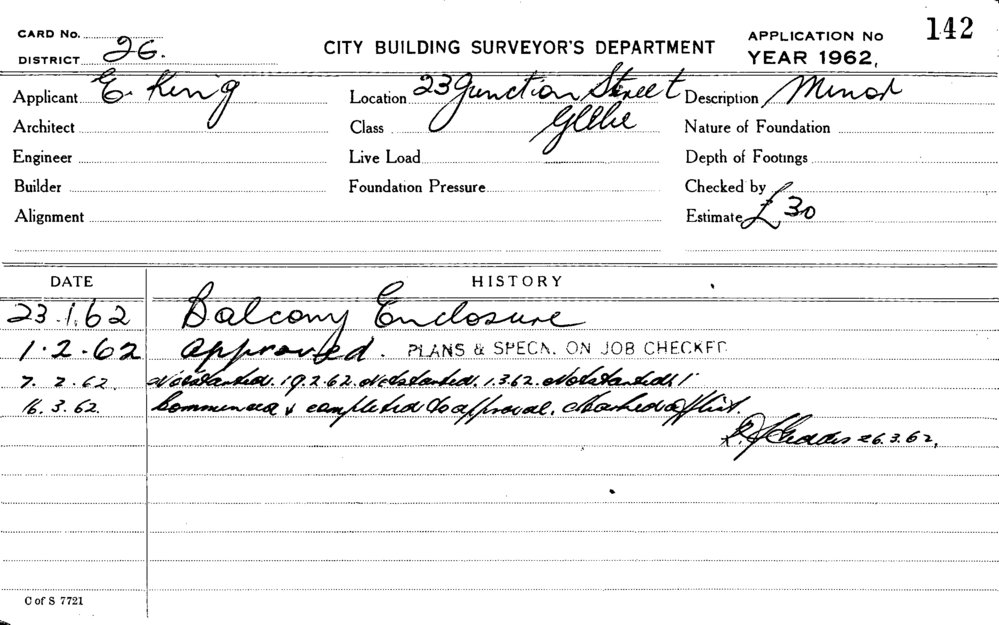 CARD No.
DISTRICT 26.
CITY BUILDING SURVEYOR'S DEPARTMENT
APPLICATION No 142
YEAR 1962,
Applicant E. King
Location 23 Junction Street
Glebe
Description Minor
Architect
Class
Nature of Foundation
Engineer
Live Load
Depth of Footings
Builder
Foundation Pressure
Checked by
Alignment
Estimate £30
DATE HISTORY
23.1.62 Balcony Enclosure
1.2.62 Approved. PLANS & SPECN. ON JOB CHECKED
7.2.62. Not started. 19.2.62. Not started. 1.3.62. Not started.
16.3.62. Commenced & completed to approval. Marked off list.
26.3.62.
C of S 7721